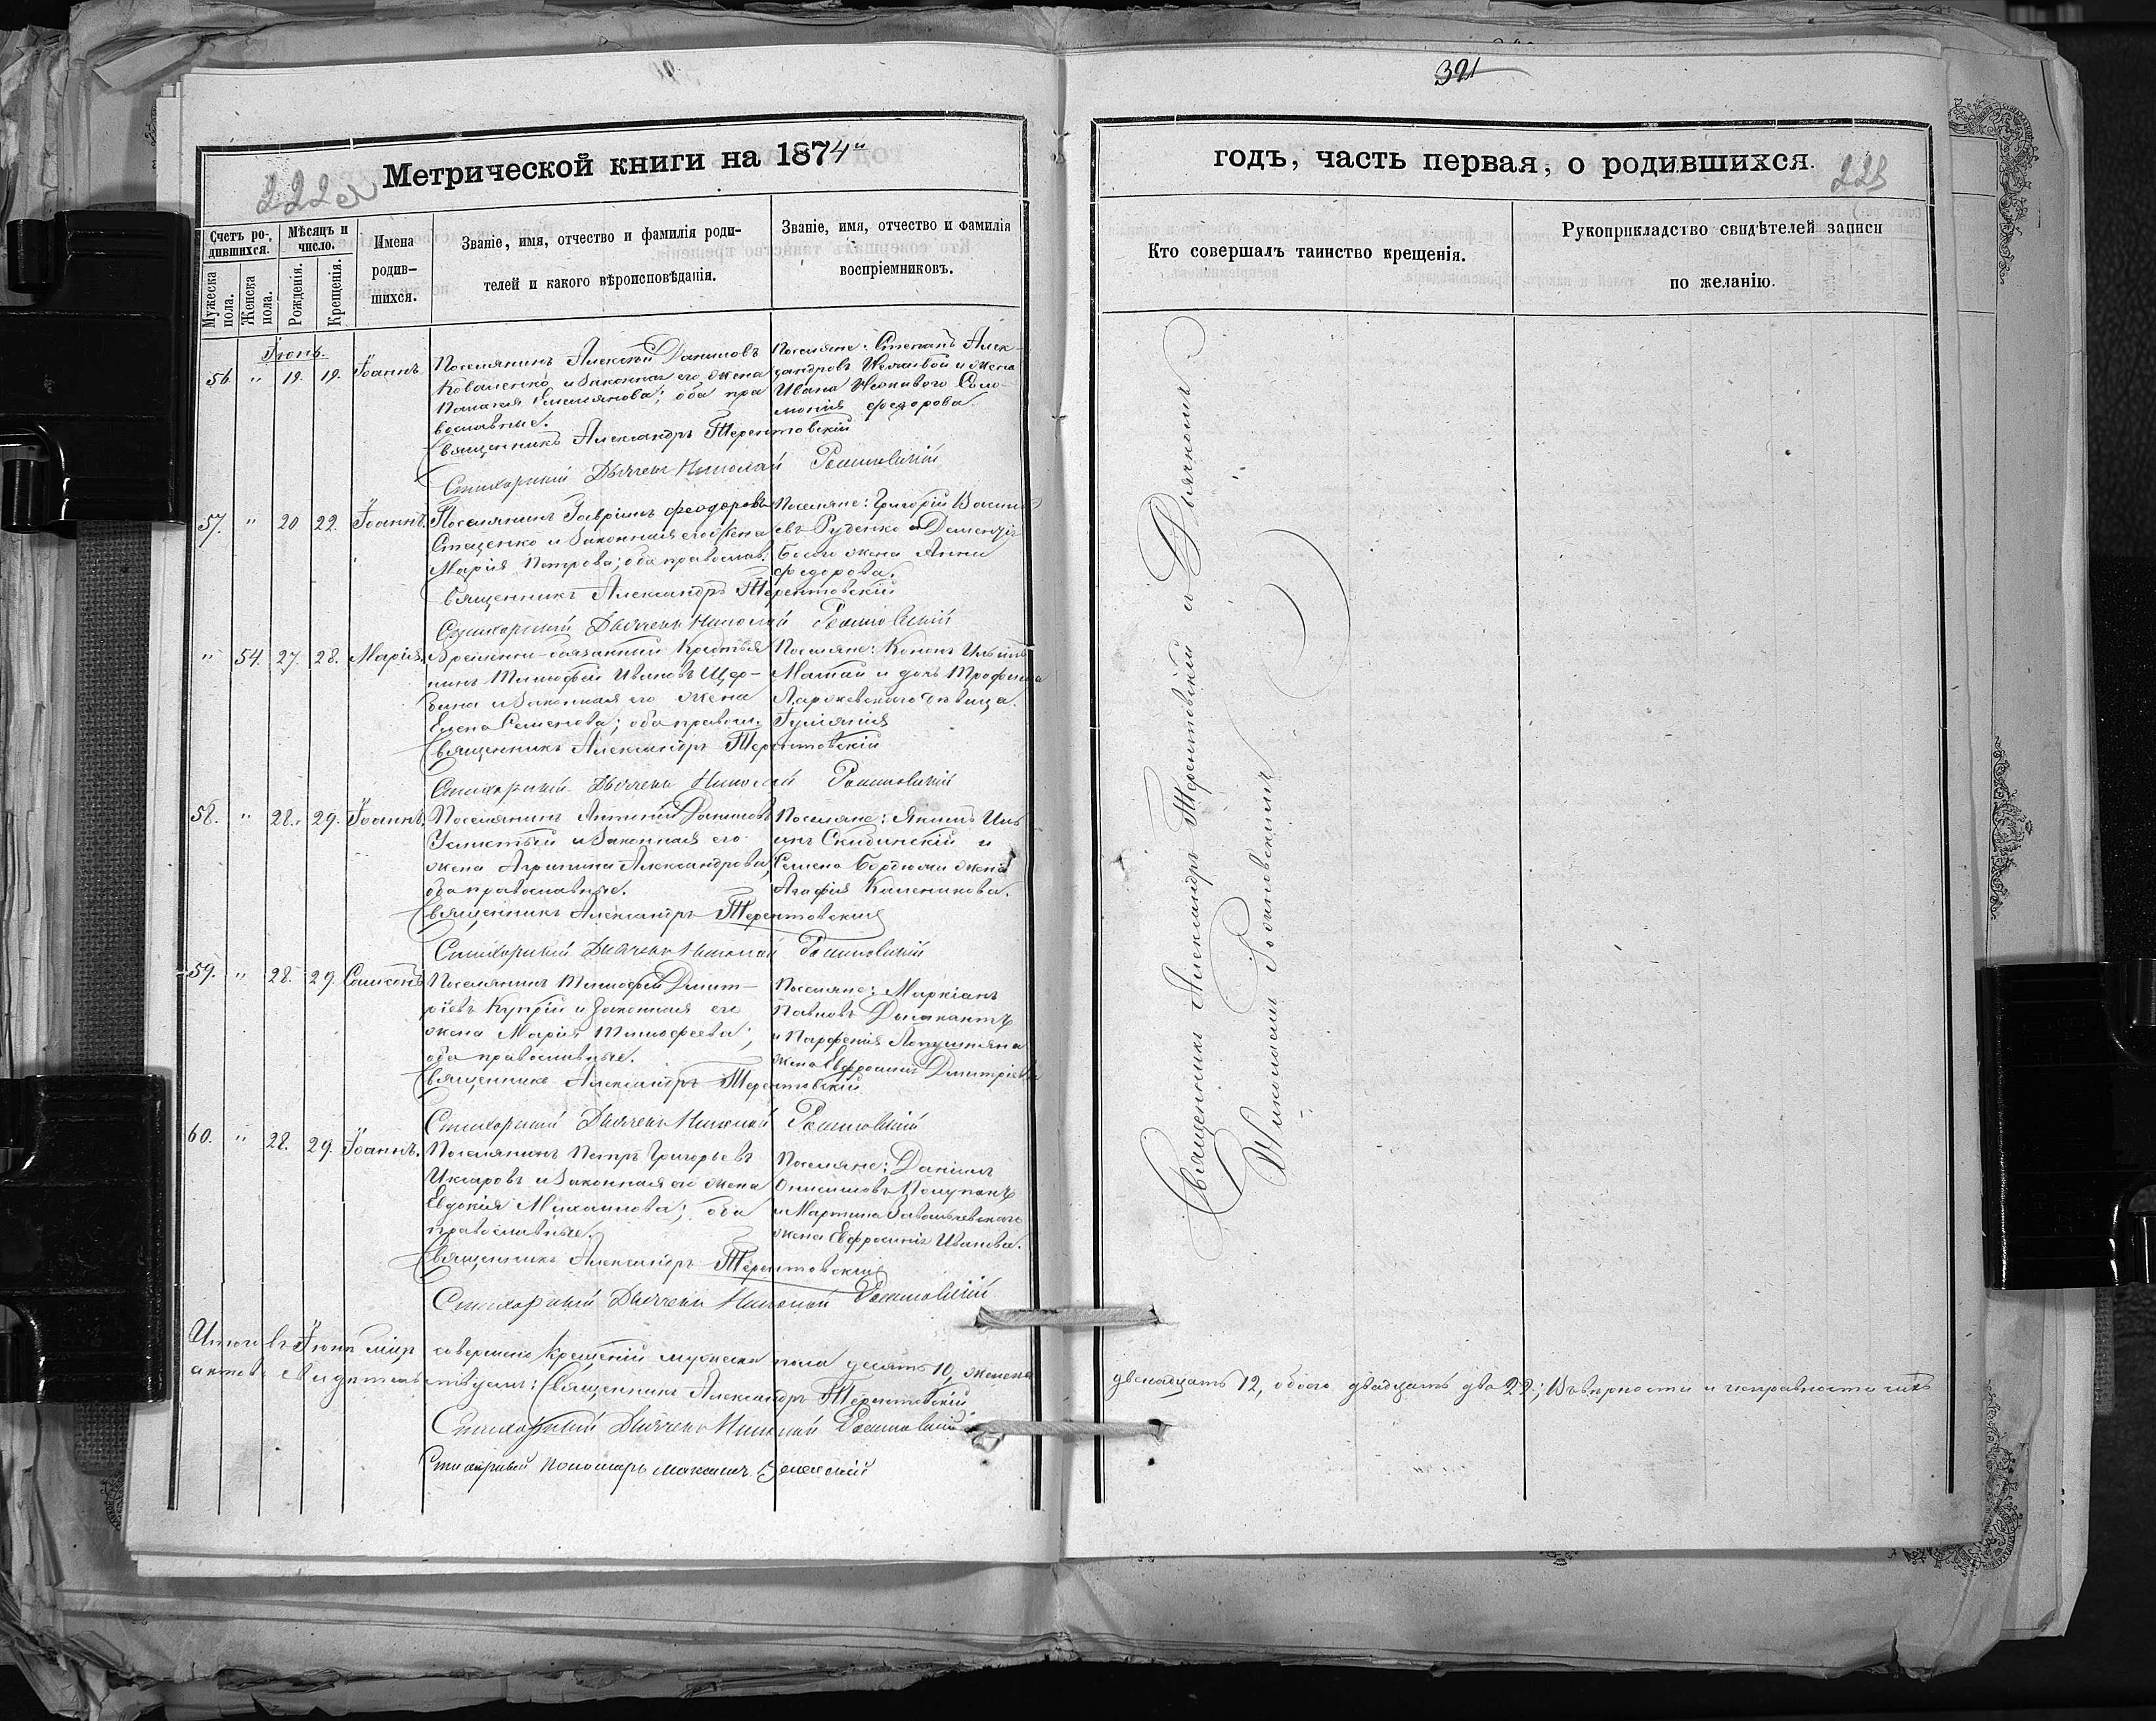 321
Метрической книги на 1874й
222
годъ, часть первая, о родившихся.
223
Счетъ ро-
дившихся.
Мужеска пола.
Женска пола.
Мѣсяцъ и
число.
Рожденія.
Крещенія.
Имена
родив-
шихся.
Званіе, имя, отчество и фамилія роди-
телей и какого вѣроисповѣданія.
Званіе, имя, отчество и фамилія
воспріемниковъ.
Кто совершалъ таинство крещенія.
Рукоприкладство свидѣтелей записи
по желанію.
Іюнь.
56. " 19. 19. Іоаннъ.
Поселянинъ Алексѣй Даниловъ
Коваленко и законная его жена
Пелагия Емелянова; оба пра
вославные.
Поселяне: Степанъ Алек-
сандровъ и жена
Ивана Соло-
мония Федорова.
Священникъ Александръ Терентовскій
Стихарный Дьячекъ Николай
57. " 20 22 Іоаннъ.
Поселянинъ Гавріилъ Феодоровъ
Стаценко и законная его жена
Марія Петрова; оба православ.
Поселяне: Григорій Василі
евъ Руденко и
жена Анна
Федорова.
Священникъ Александръ Терентовскій
Стихарный Дьячекъ Николай
" 54. 27. 28. Марія.
Временно-обязанный Крестья
нинъ Тимофей Ивановъ Щер-
бина и законная его жена
Елена Семенова; оба правосл.
Поселяне: Кононъ Ильинъ
и дочь Трофима
дѣвица
Іуліанія
Священникъ Александръ Терентовскій
Стихарный Дьячекъ Николай
58. " 28. 29. Іоаннъ.
Поселянинъ Антоній Даниловъ
и законная его
жена Агрипина Александрова;
оба православные.
Поселяне: Якимъ Иль
инъ Скидинскій и
Семена жена
Агафія Каленикова.
Священникъ Александръ Терентовскій
Стихарный Дьячекъ Николай
59. " 28. 29. Самсонъ
Поселянинъ Тимофей Дмит-
ріевъ Купрій и законная его
жена Марія Тимофеева;
оба православные.
Поселяне: Маркіанъ
Павловъ
и Парфенія
жена Евфросинія Дмитріева
Священникъ Александръ Терентовскій
Стихарный Дьячекъ Николай
60. " 28. 29. Іоаннъ.
Поселянинъ Петръ Григорьевъ
и законная его жена
Евдокія Михаилова; оба
православные.
Поселяне: Даніилъ
Онисимовъ Полупанъ
и Мартина
жена Евфросинія Иванова.
Священникъ Александръ Терентовскій
Стихарный Дьячекъ Николай
Итого въ Іюнѣ мцѣ совершено крещеній мужеска пола десять 10, женска двенадцать 12, обоего двадцать два 22; Въ вѣрности и исправности сихъ
актовъ свидѣтельствуемъ: Священникъ Александръ Терентовскій
Стихарный Дьячекъ Николай
Стихарный пономарь
Священникъ Александръ Терентовскій и Дьячкомъ
Николаемъ